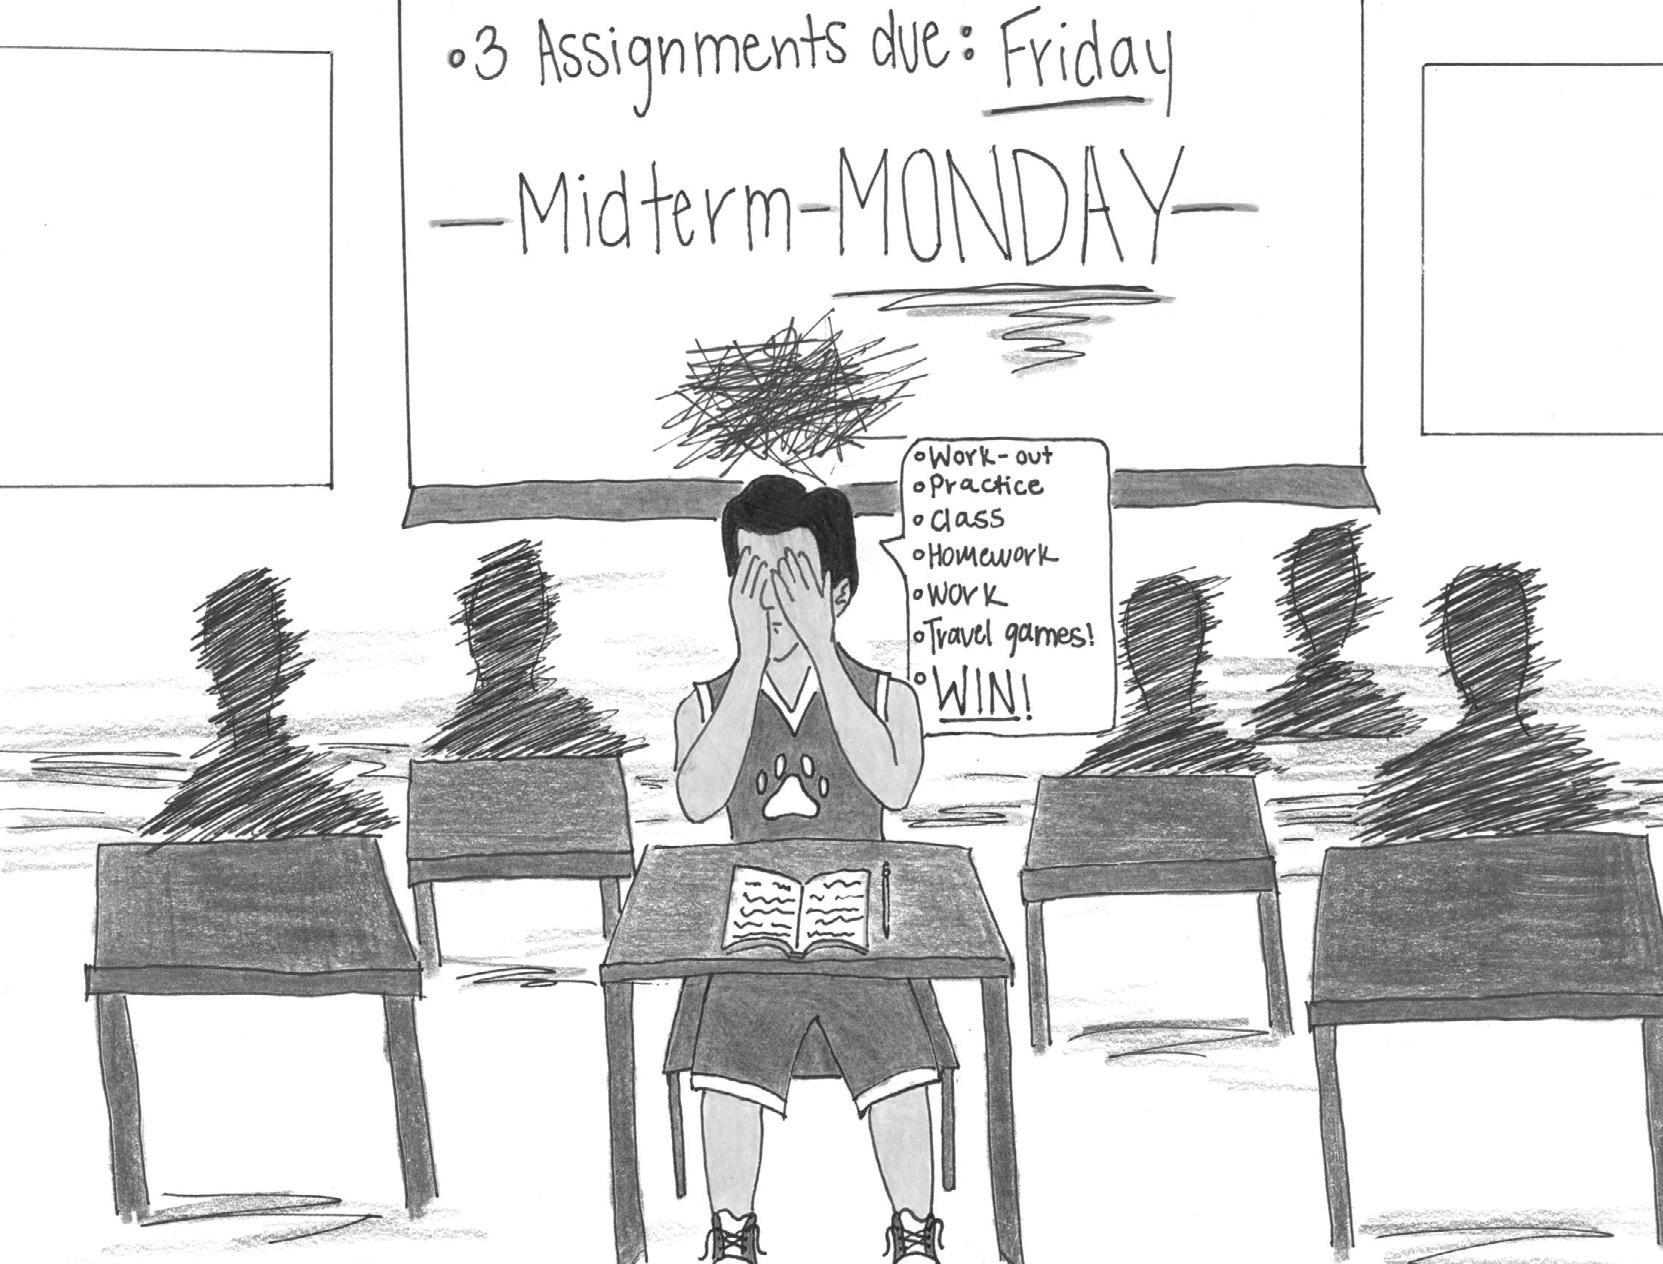 •3 Assignments due: Friday
—Midterm-MONDAY—
•Work-out
•Practice
•Class
•Homework
•Work
•Travel games!
•WIN!